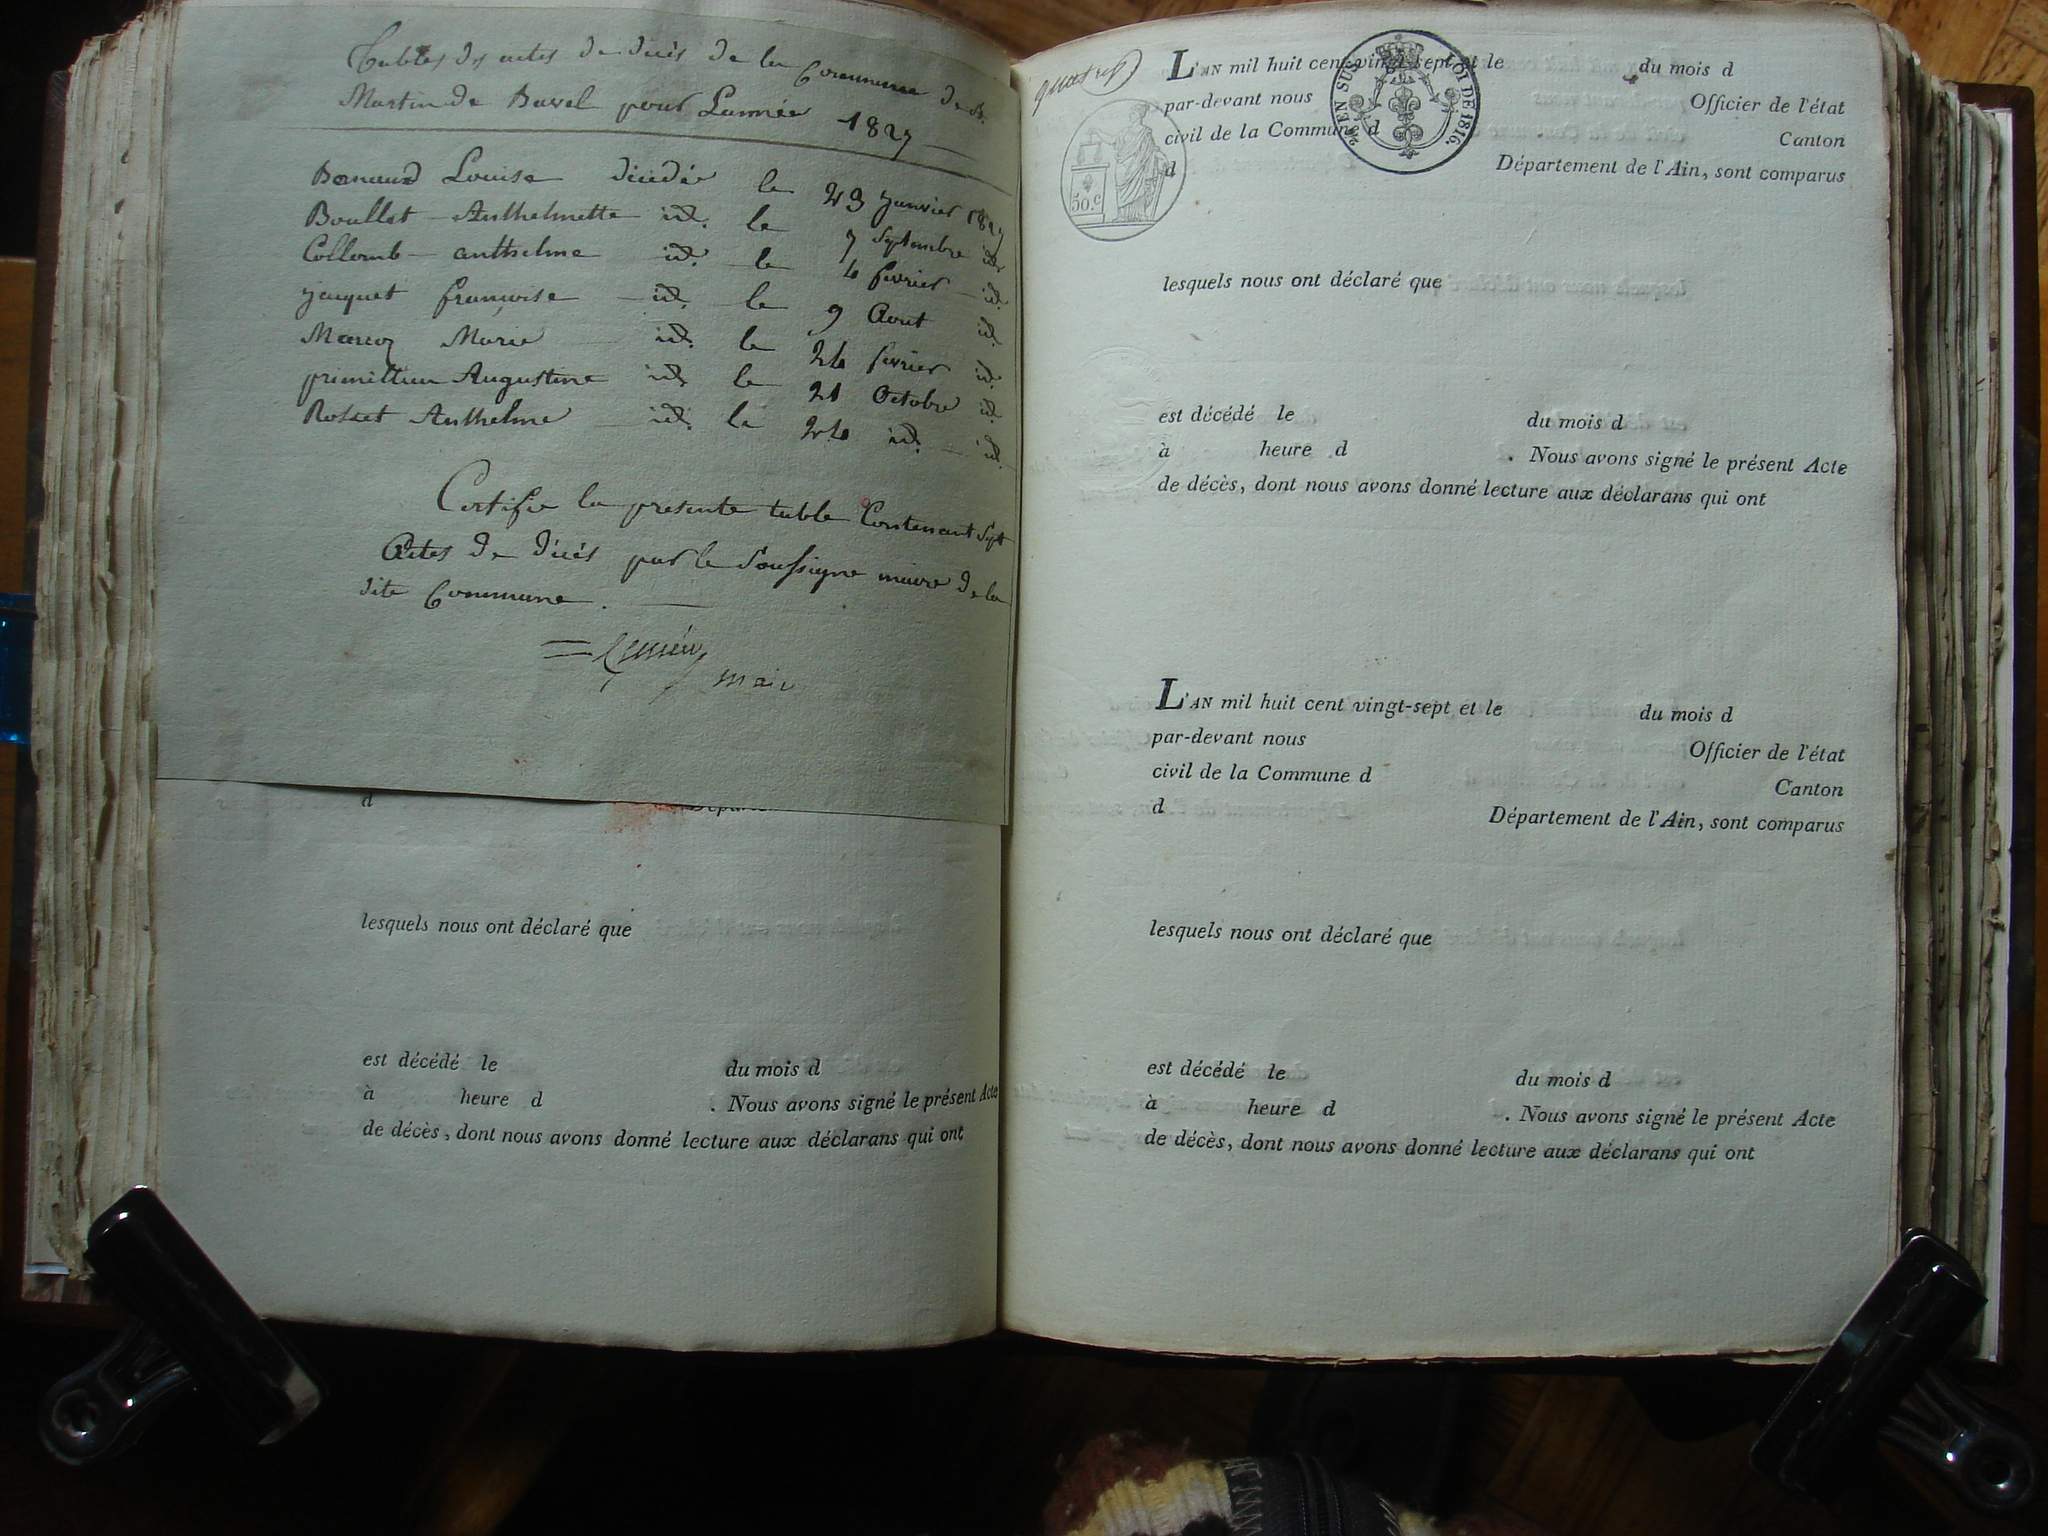 Tables des actes de décès de la Commune de St.
Martin de Bavel pour L'année 1827
Louise décédée le 23 janvier 1827
Boullet Anthelmette id. le 7 Septembre id.
Collomb anthelme id. le 4 fevrier id.
jaquet françoise id. le 9 Aout id.
Marie id. le 24 fevrier id.
Augustine id. le 21 Octobre id.
Rosset Anthelme id. le 24 id. id.
Certifie la presente table Contenant Sept
Actes de décès par le Soussigne maire de la
dite Commune.
maire
d
lesquels nous ont déclaré que
est décédé le du mois d
à heure d . Nous avons signé le présent Acte
de décès, dont nous avons donné lecture aux déclarans qui ont
quatre
L'AN mil huit cent vingt-sept et le du mois d
par-devant nous Officier de l'état
civil de la Commune d Canton
d Département de l'Ain, sont comparus
EN SUS LOI DE 1816.
50.c
lesquels nous ont déclaré que
est décédé le du mois d
à heure d . Nous avons signé le présent Acte
de décès, dont nous avons donné lecture aux déclarans qui ont
L'AN mil huit cent vingt-sept et le du mois d
par-devant nous Officier de l'état
civil de la Commune d Canton
d Département de l'Ain, sont comparus
lesquels nous ont déclaré que
est décédé le du mois d
à heure d . Nous avons signé le présent Acte
de décès, dont nous avons donné lecture aux déclarans qui ont